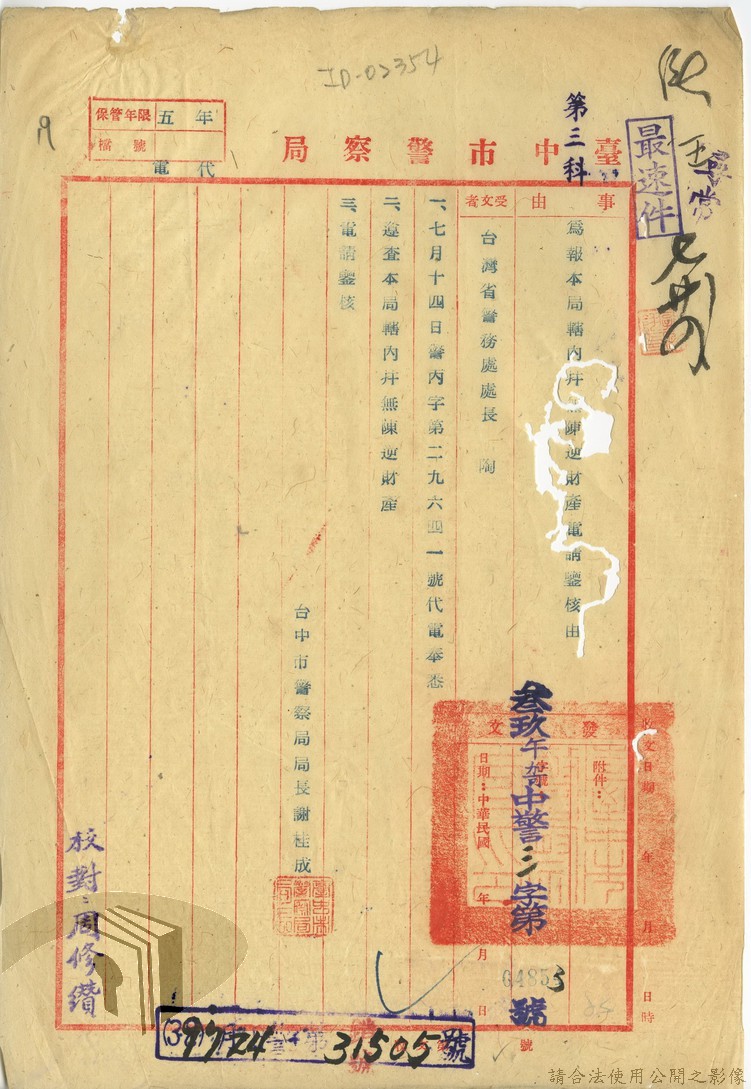 ID-02354
年 五 限年管保
號 檔
臺中市警察局
代電
第三科
最速件
事由
為報本局轄內幷無陳逆財產電請鑒核由
受文者
台灣省警務處處長 陶
一、七月十四日警丙字第二九六四一號代電奉悉
二、遵查本局轄內幷無陳逆財產
三、電請鑒核
台中市警察局局長謝桂成
收文日期 年 月 日 時
發文
附件：
日期：中華民國 年 月 日
叁玖午
中警三字第
號
校對：周修鑽
(39) 7.24
第31505號
請合法使用公開之影像